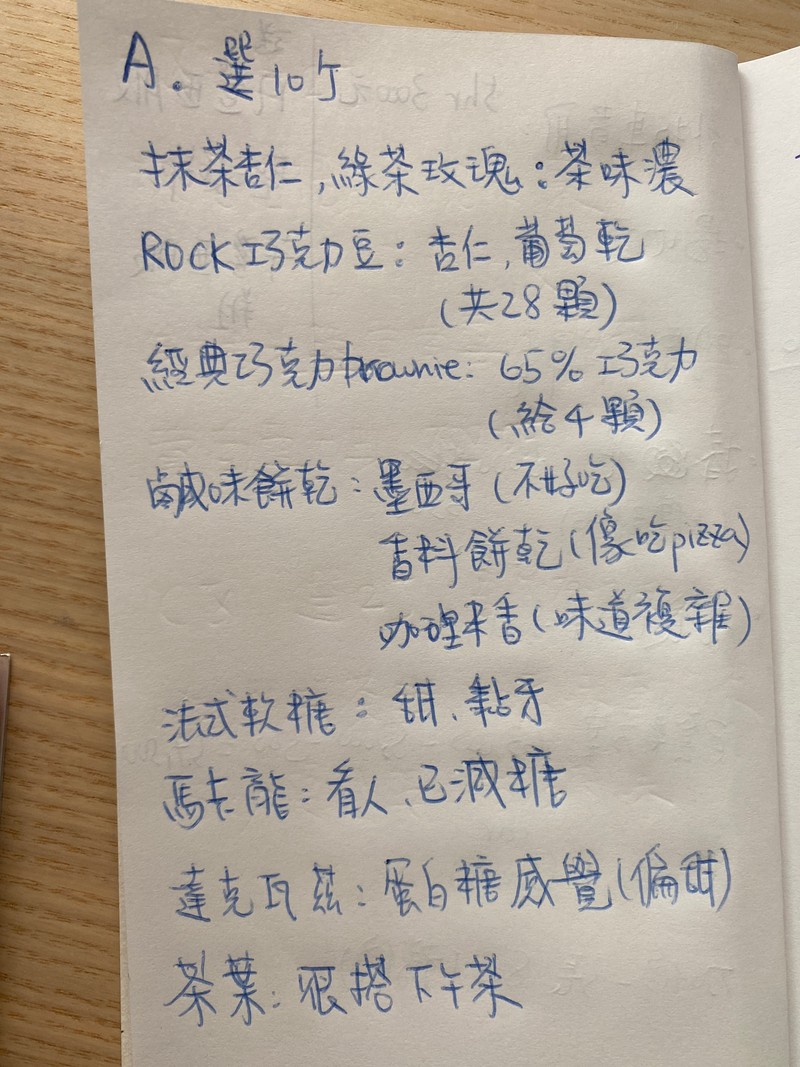 A. 選10個
抹茶杏仁,綠茶玫瑰:茶味濃
ROCK巧克力豆:杏仁,葡萄乾
(共28顆)
經典巧克力brownie: 65%巧克力
(給4顆)
鹹味餅乾:墨西哥(不好吃)
香料餅乾(像吃pizza)
咖哩米香(味道複雜)
法式軟糖:甜、黏牙
馬卡龍:看人、已減糖
達克瓦茲:蛋白糖感覺(偏甜)
茶葉:很搭下午茶